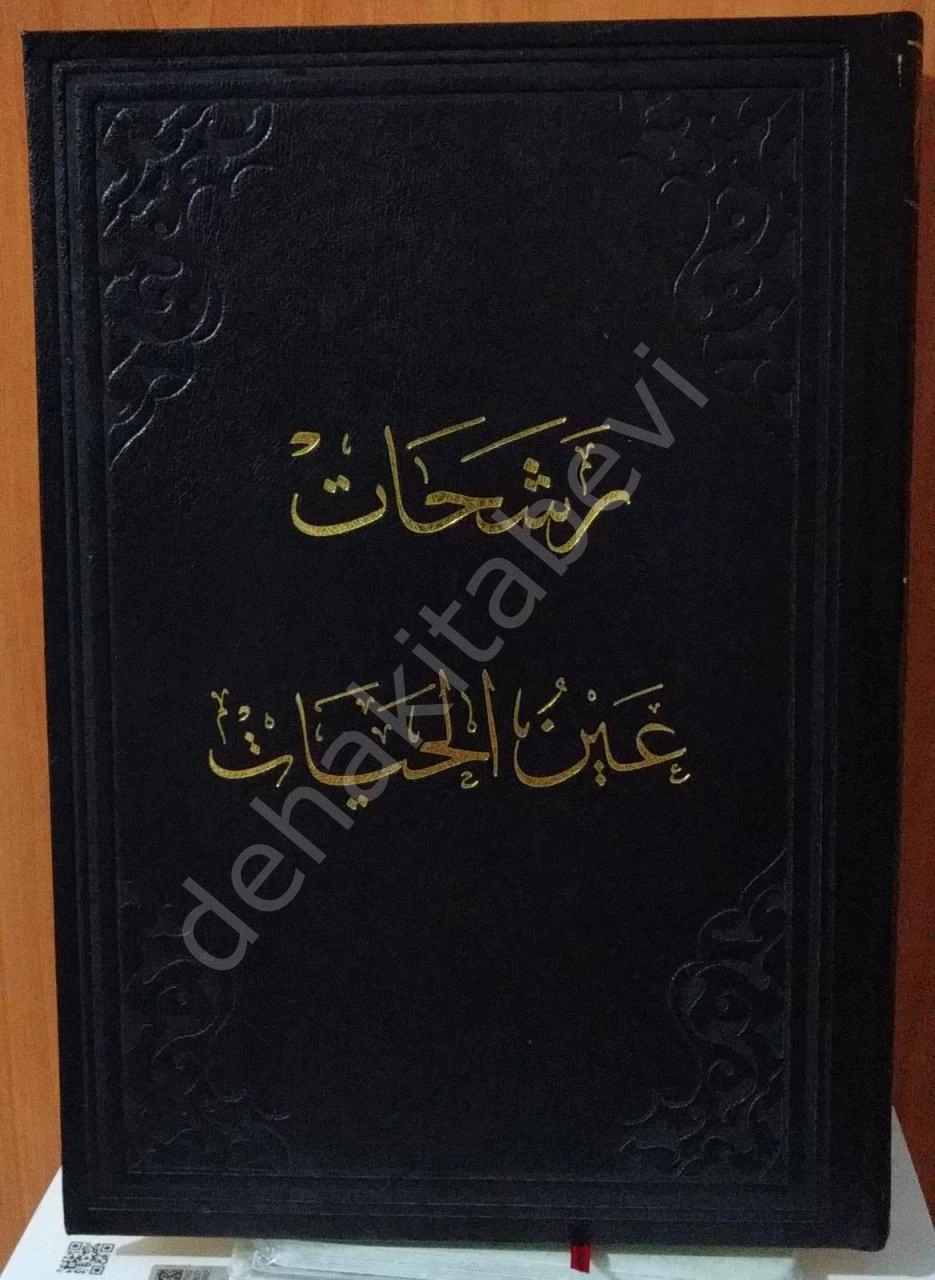 رَشَحَات
عَيْنُ الحَيَات
dehakitabevi